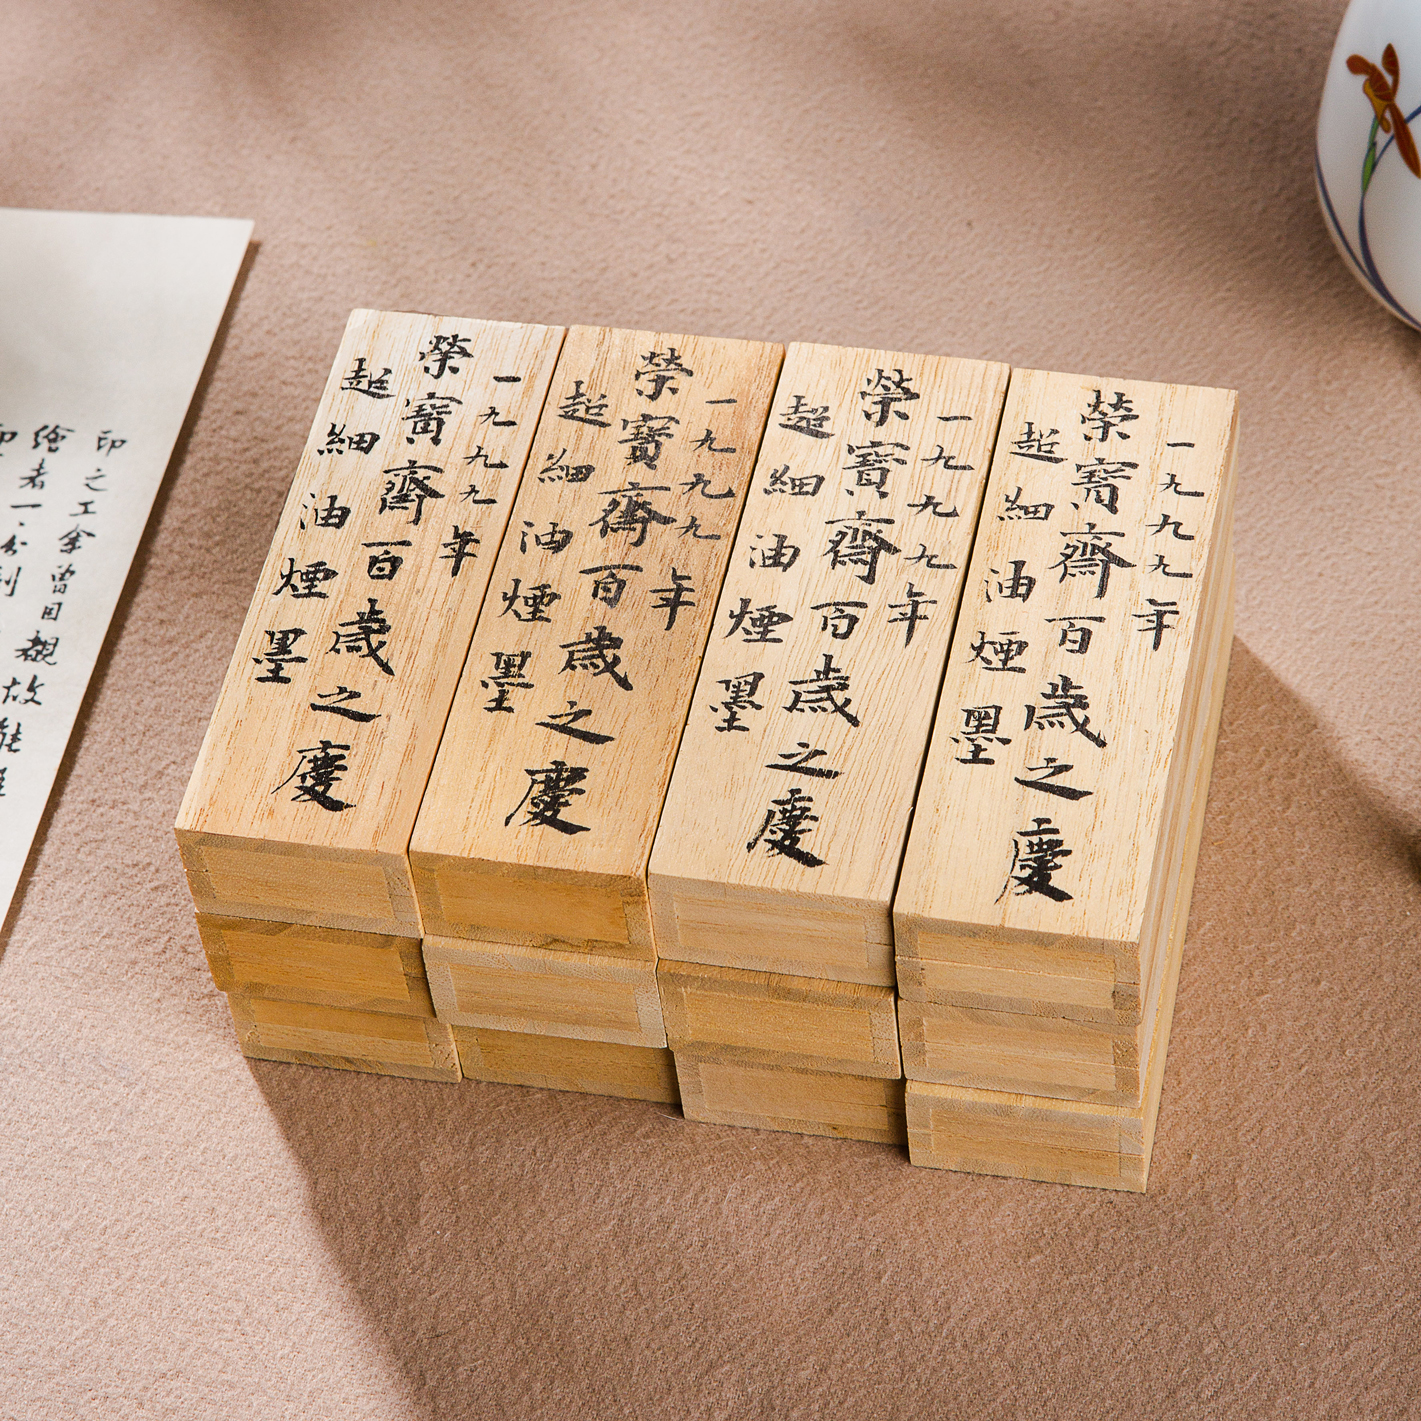 一九九九年
榮寶齋百歲之慶
超細油煙墨
一九九九年
榮寶齋百歲之慶
超細油煙墨
一九九九年
榮寶齋百歲之慶
超細油煙墨
一九九九年
榮寶齋百歲之慶
超細油煙墨
印之工余曾目觀故難
繪者一